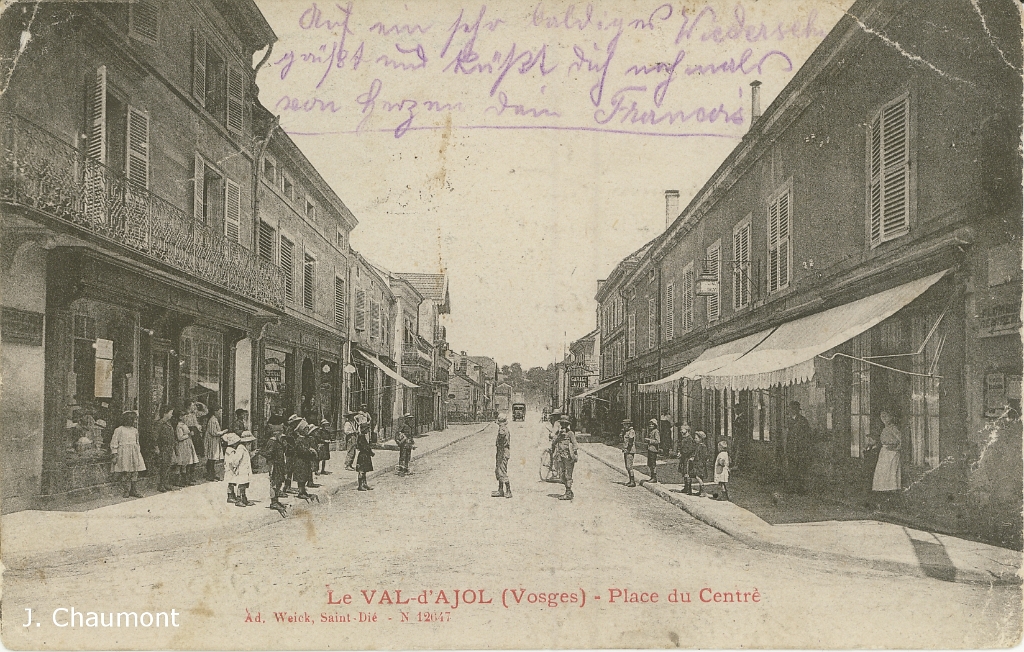 Auf ein sehr baldiges Wiedersehn
grüßt und küßt dich nochmals
von Herzen dein Francois
Le VAL-d'AJOL (Vosges) - Place du Centre
Ad. Weick, Saint-Dié - N 12647
J. Chaumont